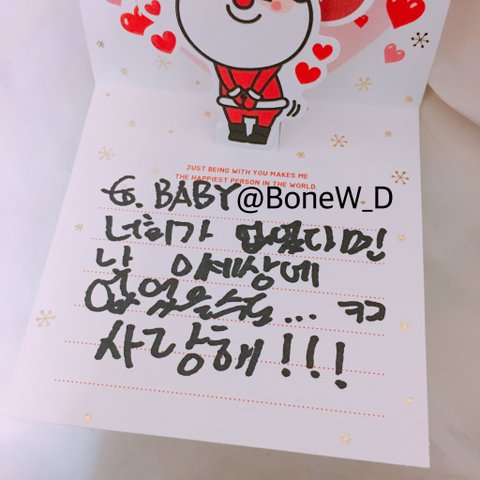 JUST BEING WITH YOU MAKES ME
THE HAPPIEST PERSON IN THE WORLD
G. BABY @BoneW_D
너희가 없었다면
난 이세상에
없었을수도... ㅋㅋ
사랑해!!!